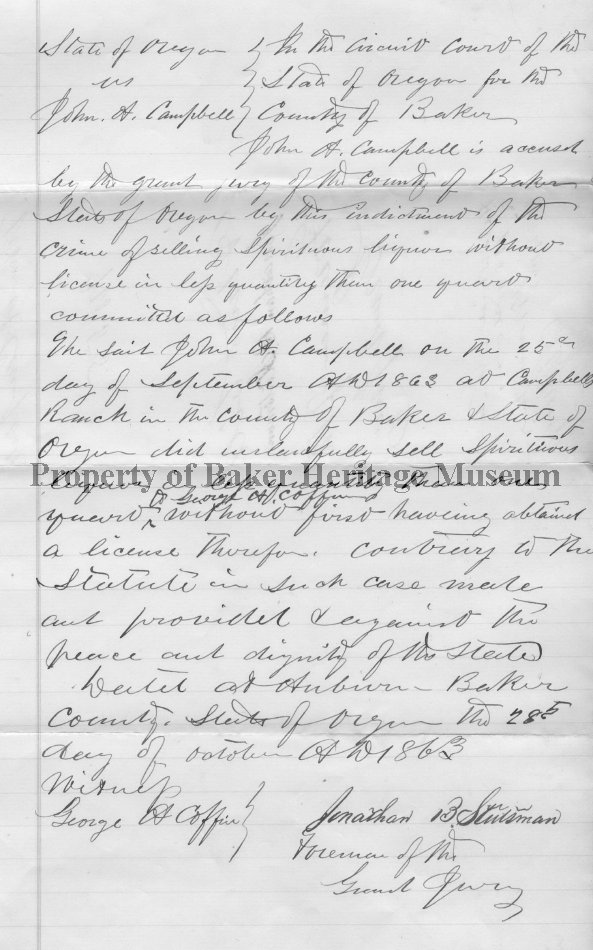 State of Oregon } In the Circuit Court of the
vs } State of Oregon for the
John. A. Campbell } County of Baker
John A. Campbell is accused
by the grant jury of the County of Baker
State of Oregon by this indictment of the
crime of selling Spirituous liquor without
license in less quantity than one quart
committed as follows
The said John A. Campbell on the 25th
day of September AD 1863 at Campbells
Ranch in the County of Baker & State of
Oregon did unlawfully sell Spirituous
Property of Baker Heritage Museum
liquor in less quantity than one
to George H. Coffin
quart ^ without first having obtained
a license therefor. contrary to the
Statute in such case made
and provided & against the
peace and dignity of the State
Dated at Auburn - Baker
County. State of Oregon the 28th
day of October AD 1863
Witness
George H Coffin } Jonathan B. Stutsman
Foreman of the
Grand Jury